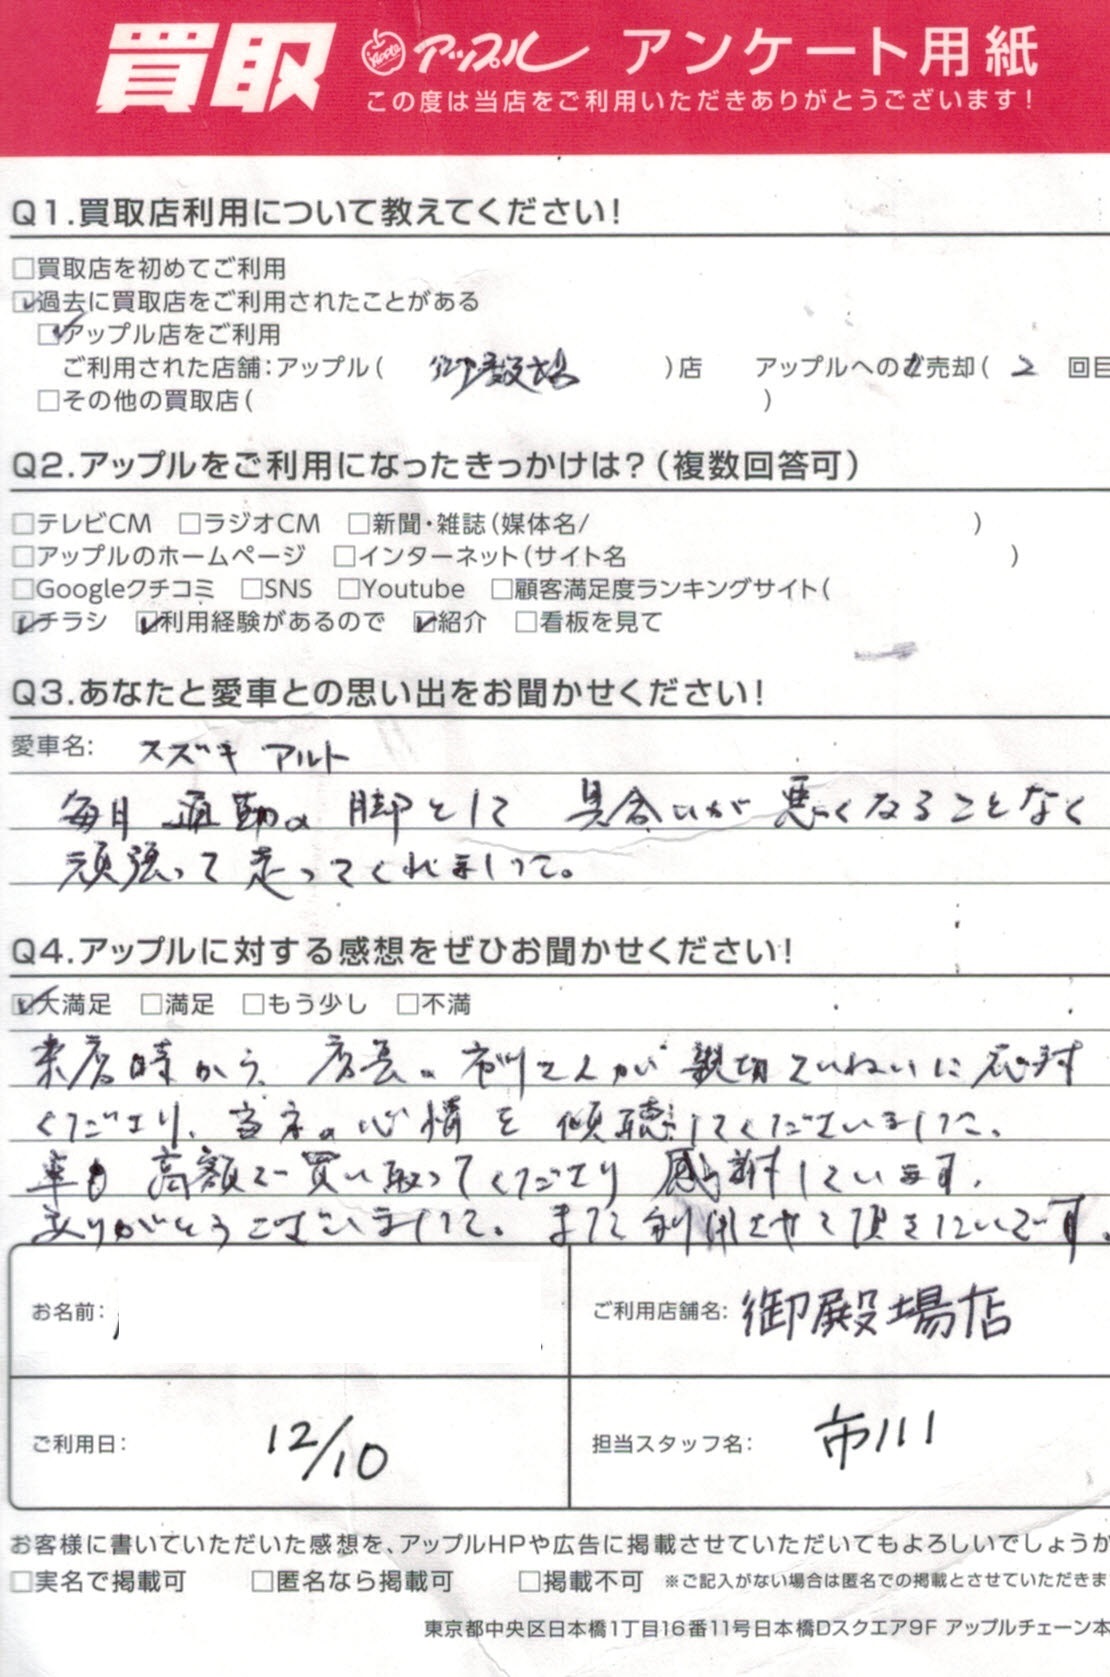 買取 Apple アップル アンケート用紙
この度は当店をご利用いただきありがとうございます!
Q1.買取店利用について教えてください!
□買取店を初めてご利用
☑過去に買取店をご利用されたことがある
☑アップル店をご利用
ご利用された店舗:アップル( 御殿場 )店 アップルへのご売却( 2 回目
□その他の買取店( )
Q2.アップルをご利用になったきっかけは?(複数回答可)
□テレビCM □ラジオCM □新聞・雑誌(媒体名/ )
□アップルのホームページ □インターネット(サイト名 )
□Googleクチコミ □SNS □Youtube □顧客満足度ランキングサイト(
☑チラシ ☑利用経験があるので ☑紹介 □看板を見て
Q3.あなたと愛車との思い出をお聞かせください!
愛車名: スズキ アルト
毎日 通勤の 脚として 具合いが 悪くなることなく
頑張って走ってくれました。
Q4.アップルに対する感想をぜひお聞かせください!
☑大満足 □満足 □もう少し □不満
来店時から、店長の市川さんが親切ていねいに応対
くださり、当方の心情を傾聴してくださいました。
車も高額で買い取ってくださり感謝しています。
ありがとうございました。また利用させて頂きたいです。
お名前:
ご利用店舗名: 御殿場店
ご利用日: 12/10
担当スタッフ名: 市川
お客様に書いていただいた感想を、アップルHPや広告に掲載させていただいてもよろしいでしょうか
□実名で掲載可 □匿名なら掲載可 □掲載不可 ※ご記入がない場合は匿名での掲載とさせていただきま
東京都中央区日本橋1丁目16番11号日本橋Dスクエア9F アップルチェーン本